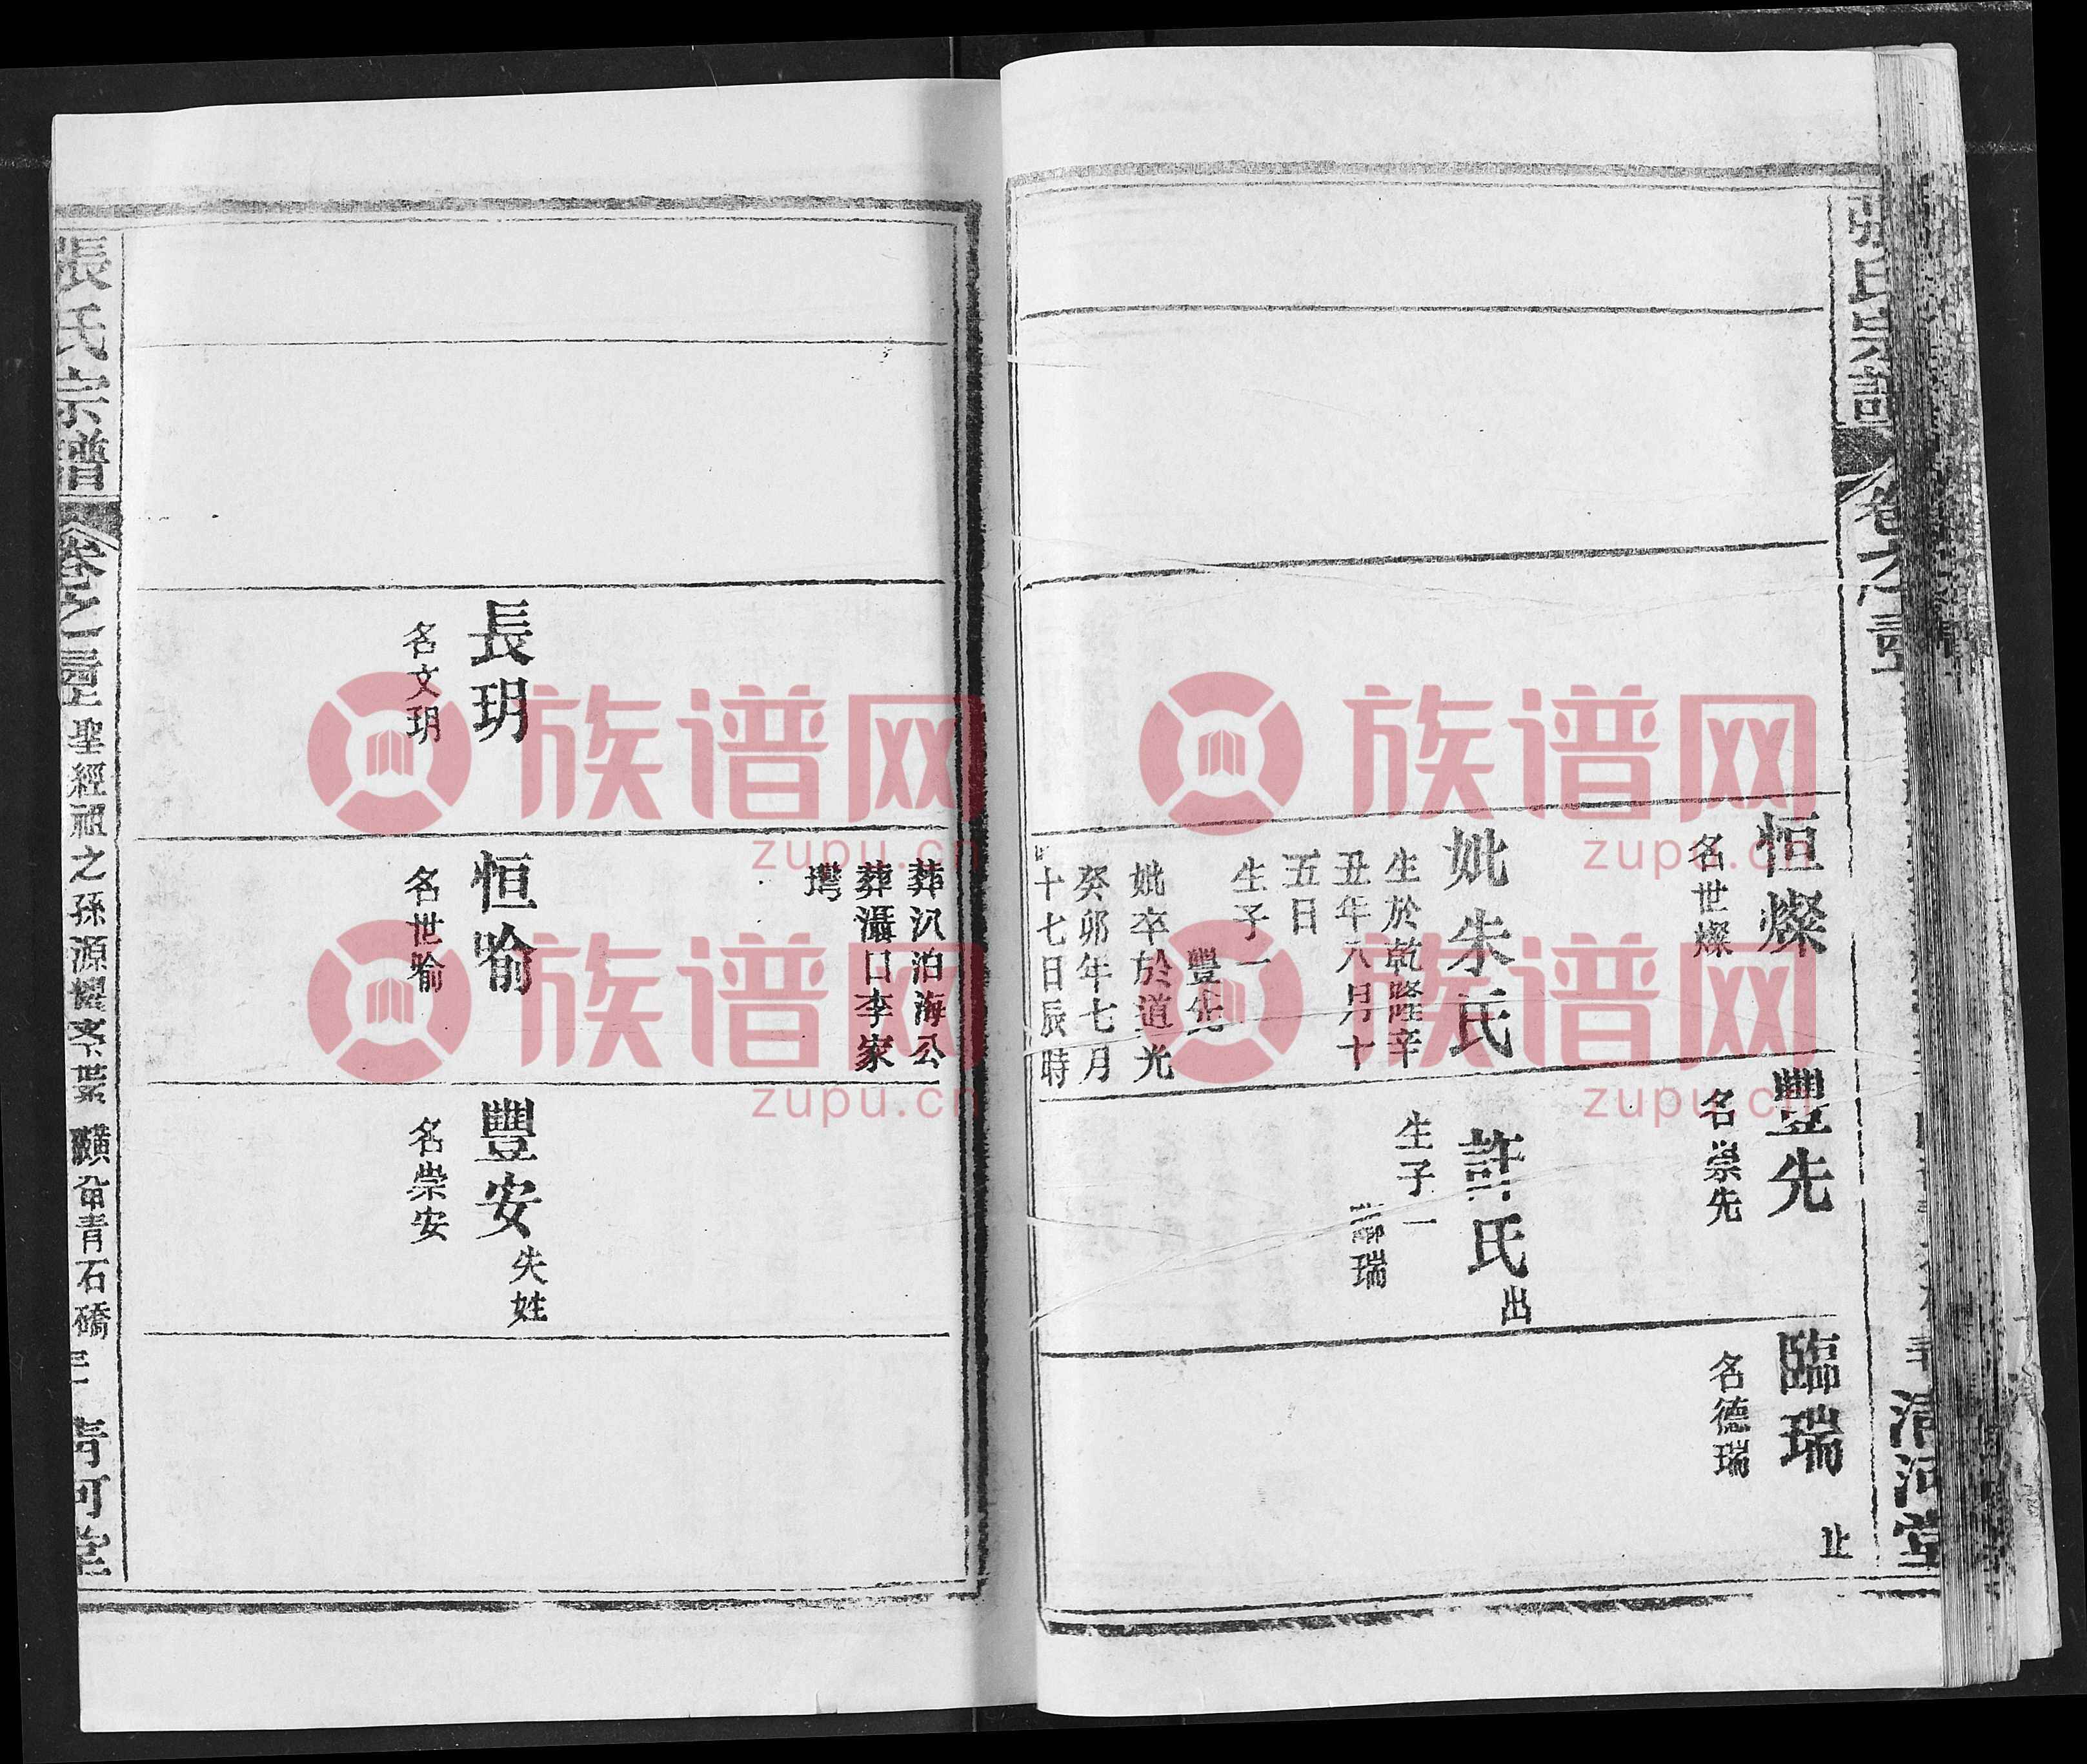 張氏宗譜
清河堂
恒燦
名世燦
妣朱氏
生於乾隆辛
丑年八月十
五日
生子一
豐先
妣卒於道光
癸卯年七月
十七日辰時
豐先
名崇先
許氏出
生子一
臨瑞
臨瑞
名德瑞
止
葬汎泊海公
葬灄口李家
塆
長玥
名文玥
恒喻
名世喻
豐安失姓
名崇安
張氏宗譜
卷之
聖經祖之孫源
青石礄
青河堂
族谱网
zupu.cn
族谱网
zupu.cn
族谱网
zupu.cn
族谱网
zupu.cn